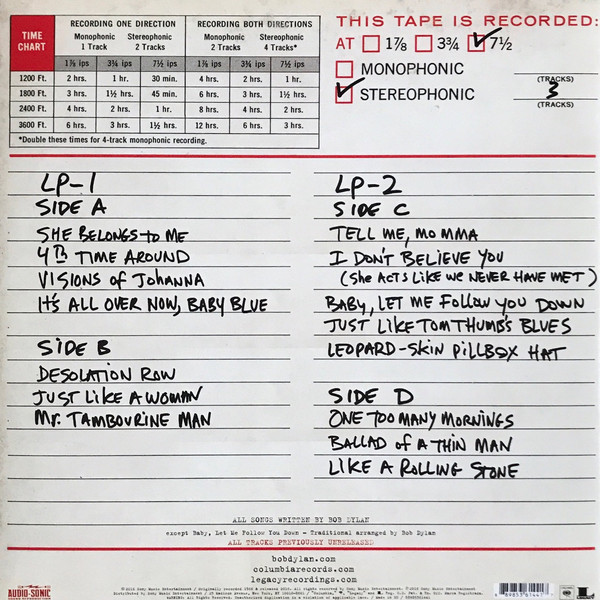 TIME CHART
RECORDING ONE DIRECTION
RECORDING BOTH DIRECTIONS
Monophonic 1 Track
Stereophonic 2 Tracks
Monophonic 2 Tracks
Stereophonic 4 Tracks*
1⅞ ips 3¾ ips 7½ ips 1⅞ ips 3¾ ips 7½ ips
1200 Ft. 2 hrs. 1 hr. 30 min. 4 hrs. 2 hrs. 1 hr.
1800 Ft. 3 hrs. 1½ hrs. 45 min. 6 hrs. 3 hrs. 1½ hrs.
2400 Ft. 4 hrs. 2 hrs. 1 hr. 8 hrs. 4 hrs. 2 hrs.
3600 Ft. 6 hrs. 3 hrs. 1½ hrs. 12 hrs. 6 hrs. 3 hrs.
*Double these times for 4-track monophonic recording.
THIS TAPE IS RECORDED:
AT 1⅞ 3¾ 7½
MONOPHONIC
(TRACKS)
STEREOPHONIC 3
(TRACKS)
LP-1
SIDE A
SHE BELONGS TO ME
4TH TIME AROUND
VISIONS of JOHANNA
IT'S ALL OVER NOW, BABY BLUE
SIDE B
DESOLATION ROW
JUST LIKE A WOMAN
Mr. TAMBOURINE MAN
LP-2
SIDE C
TELL ME, MOMMA
I DON'T BELIEVE YOU
(She ACTS LIKE WE NEVER HAVE MET)
BABY, LET ME Follow YOU DOWN
JUST LIKE TOM THUMB'S BLUES
LEOPARD-SKIN PILLBOX HAT
SIDE D
ONE TOO MANY MORNINGS
BALLAD of A THIN MAN
LIKE A ROLLING STONE
ALL SONGS WRITTEN BY BOB DYLAN
except Baby, Let Me Follow You Down - Traditional arranged by Bob Dylan
ALL TRACKS PREVIOUSLY UNRELEASED
bobdylan.com
columbiarecords.com
legacyrecordings.com
AUDIO-SONIC